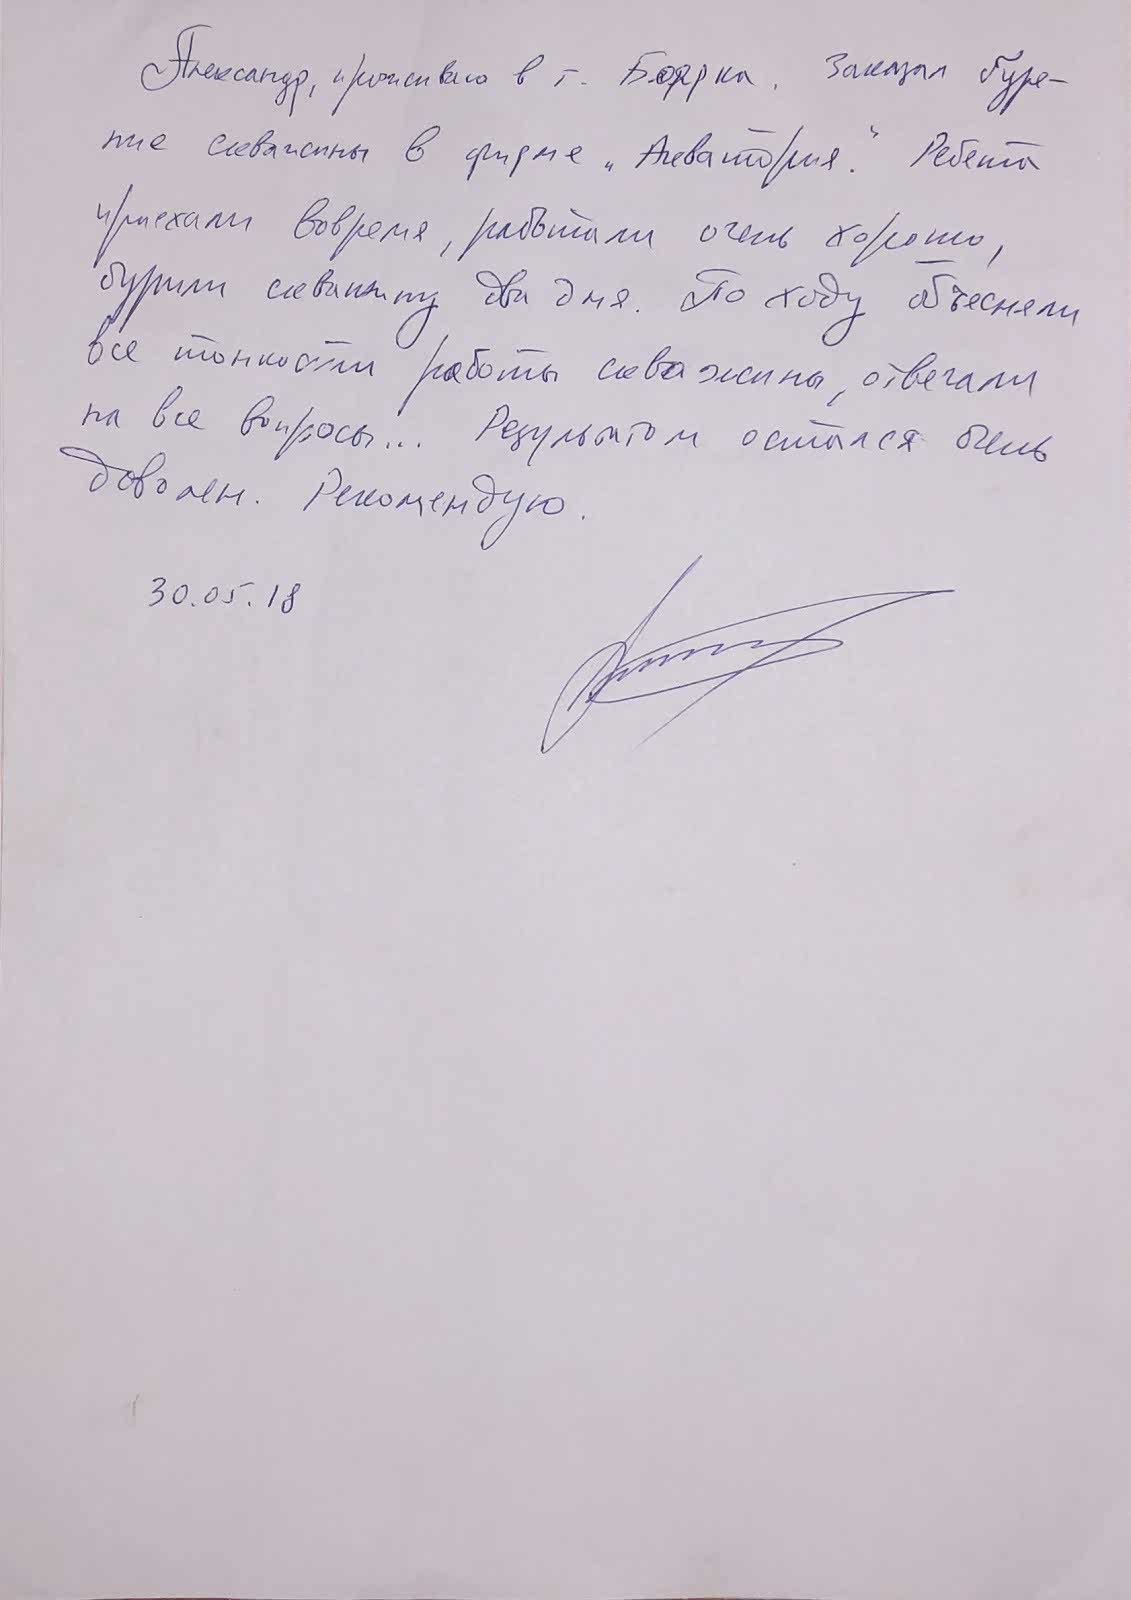 Александр, проживаю в г. Боярка. Заказал буре-
ние скважины в фирме „Акватория." Ребята
приехали вовремя, работали очень хорошо,
бурили скважину два дня. По ходу объесняли
все тонкости работы скважины, отвечали
на все вопросы... Результатом остался очень
доволен. Рекомендую.
30.05.18